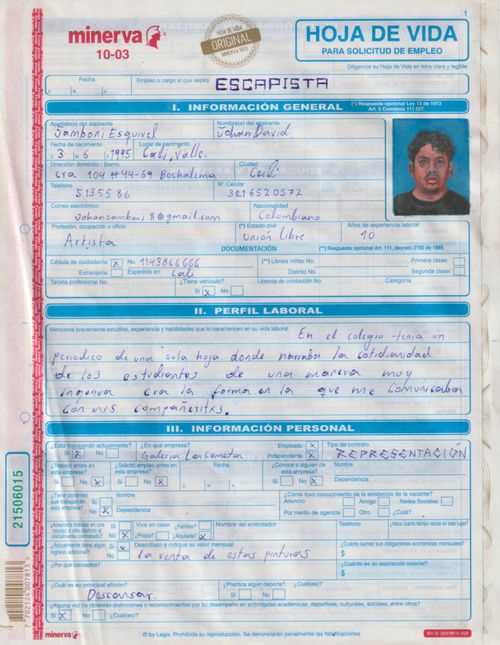 1
minerva
10-03
HOJA DE VIDA
ORIGINAL
MINERVA 1003
HOJA DE VIDA
PARA SOLICITUD DE EMPLEO
Diligencie su Hoja de Vida en letra clara y legible
Fecha
Empleo o cargo al que aspira
ESCAPISTA
I. INFORMACIÓN GENERAL
(*) Respuesta opcional Ley 13 de 1972
Art. 5 Convenio 111 OIT.
Apellido(s) del aspirante
Nombre(s) del aspirante
Samboni Esquivel
Johan David
Fecha de nacimiento
Lugar de nacimiento
3 6 1995 Cali, Valle.
Dirección domicilio / Barrio
Ciudad
cra 104 #44-69 Bochalema
Cali
Teléfono
N°. Celular
5135586
3216520572
Correo electrónico
Nacionalidad
Johansamboni8@gmail.com
Colombiano
Profesión, ocupación u oficio
(*) Estado civil
Años de experiencia laboral
Artista
Unión libre
10
DOCUMENTACIÓN
(**) Respuesta opcional Art. 111, decreto 2150 de 1995
Cédula de ciudadanía: X No. 1143866666
(**) Libreta militar No.
Primera clase:
Extranjería:
Expedida en: Cali
Distrito No.
Segunda clase:
Tarjeta profesional No.
¿Tiene vehículo?
Licencia de conducción No.
Categoría
Sí X No
II. PERFIL LABORAL
Mencione brevemente estudios, experiencia y habilidades que lo caractericen en su vida laboral
En el colegio tenia un
periodico de una sola hoja donde narraba la cotidianidad
de los estudiantes de una manera muy
ingenua era la forma en la que me comunicaba
con mis compañeritxs.
III. INFORMACIÓN PERSONAL
¿Está trabajando actualmente?
¿En qué empresa?
Empleado X
Tipo de contrato
Sí X No
Galeria
Independiente X
REPRESENTACIÓN
¿Trabajó antes en esta empresa?
¿Solicitó empleo antes en esta empresa?
Fecha
¿Conoce a alguien de esta empresa?
Nombre
Sí No X
Sí No X
Sí No X
Dependencia
¿Tiene parientes que trabajen en esta empresa?
Nombre
¿Cómo tuvo conocimiento de la existencia de la vacante?
Anuncio
Amigo
Redes Sociales
Sí No X
Dependencia
Por medio de agencia
Otro
¿Cuál?
¿Aceptaría trabajar en una ciudad o sitio distinto al inicialmente contratado?
Sí
No X
Vive en casa:
¿Familiar?
¿Propia?
¿Alquilada? X
Nombre del arrendador
Teléfono
¿Hace cuánto tiempo reside en este lugar?
¿Actualmente tiene algún ingreso adicional?
Sí X
No
Descríbalo e indique su valor mensual
la venta de estas pinturas
¿Cuánto suman sus obligaciones económicas mensuales?
$
¿Por qué conceptos?
¿Cuánto es su aspiración salarial?
$
¿Cuál es su principal afición?
¿Practica algún deporte?
¿Cuál(es)?
Descansar.
Sí No
¿Alguna vez ha obtenido distinciones o reconocimientos por su desempeño en actividades académicas, deportivas, culturales, sociales, entre otros?
Sí X No
¿Cuál(es)?
minerva
© by Legis. Prohibida su reproducción. Se denunciarán penalmente las falsificaciones
21506015